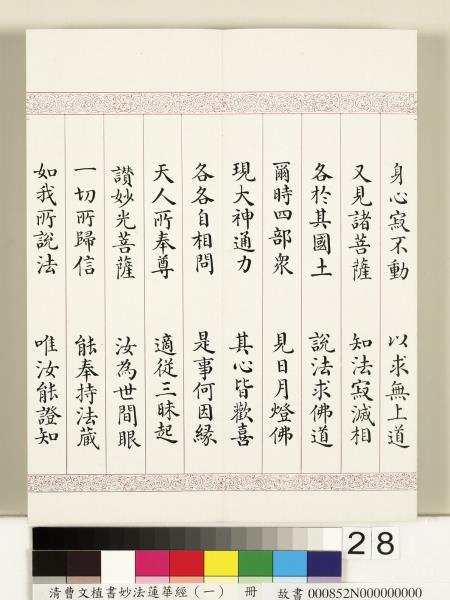 身心寂不動 以求無上道
又見諸菩薩 知法寂滅相
各於其國土 說法求佛道
爾時四部衆 見日月燈佛
現大神通力 其心皆歡喜
各各自相問 是事何因緣
天人所奉尊 適從三昧起
讚妙光菩薩 汝為世間眼
一切所歸信 能奉持法藏
如我所說法 唯汝能證知
28
清曹文植書妙法蓮華經(一) 冊 故書 000852N000000000